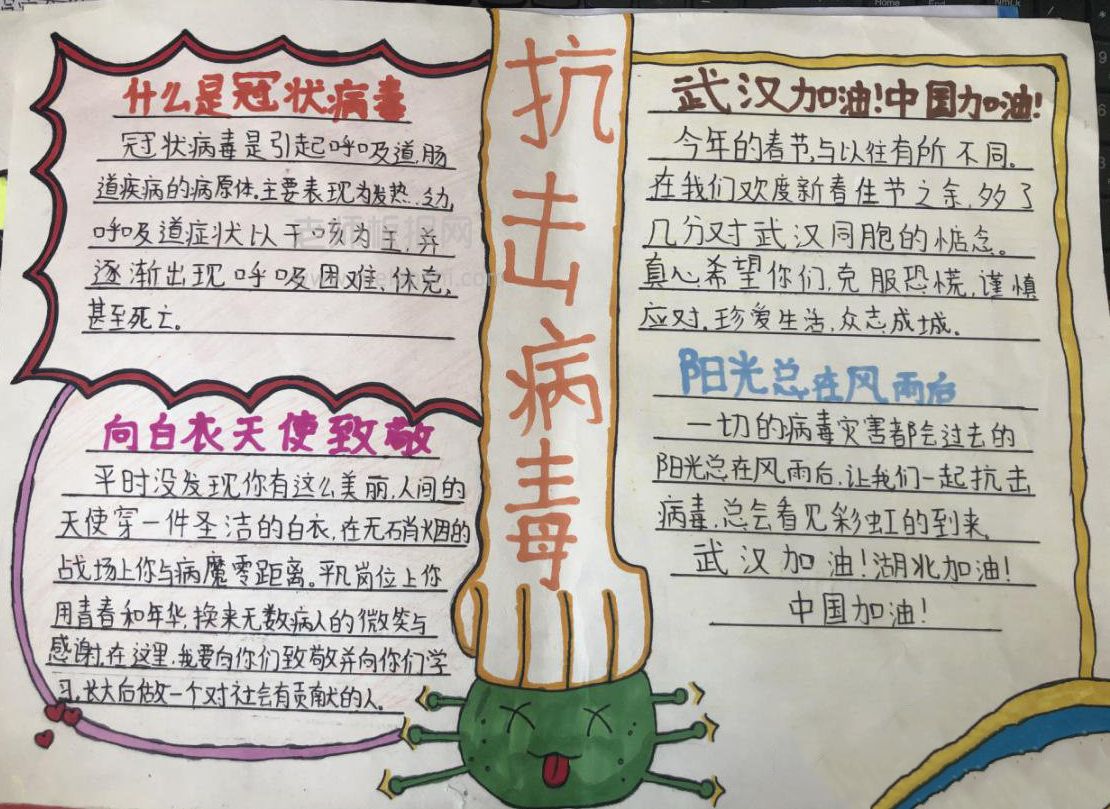 什么是冠状病毒
冠状病毒是引起呼吸道、肠
道疾病的病原体。主要表现为发热、乏力,
呼吸道症状以干咳为主,并
逐渐出现呼吸困难、休克,
甚至死亡。
向白衣天使致敬
平时没发现你有这么美丽,人间的
天使穿一件圣洁的白衣,在无硝烟的
战场上你与病魔零距离。平凡岗位上你
用青春和年华,换来无数病人的微笑与
感谢,在这里,我要向你们致敬并向你们学
习,长大后做一个对社会有贡献的人。
抗
击
病
毒
武汉加油!中国加油!
今年的春节,与以往有所不同。
在我们欢度新春佳节之余,多了
几分对武汉同胞的惦念。
真心希望你们,克服恐慌,谨慎
应对。珍爱生活,众志成城。
阳光总在风雨后
一切的病毒灾害都会过去的
阳光总在风雨后,让我们一起抗击
病毒,总会看见彩虹的到来
武汉加油!湖北加油!
中国加油!
老师板报网